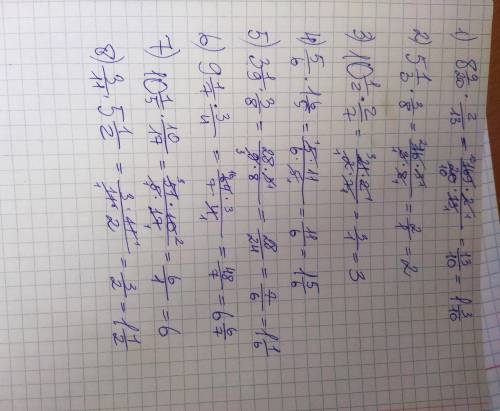 1) 8 9/20 · 2/13 = 169 · 2 / 20 · 13 = 13/10 = 1 3/10
2) 5 1/3 · 3/8 = 16 · 3 / 3 · 8 = 2/1 = 2
3) 10 1/2 · 2/7 = 21 · 2 / 2 · 7 = 3/1 = 3
4) 5/6 · 1 = 5 · 11 / 6 · 5 = 11/6 = 1 5/6
5) 3 1/9 · 3/8 = 28 · 3 / 9 · 8 = 28/24 = 7/6 = 1 1/6
6) 9 1/7 · 3/4 = 64 · 3 / 7 · 4 = 48/7 = 6 6/7
7) 10 1/5 · 10/17 = 51 · 10 / 5 · 17 = 6/1 = 6
8) 3/11 · 5 1/2 = 3 · 11 / 11 · 2 = 3/2 = 1 1/2